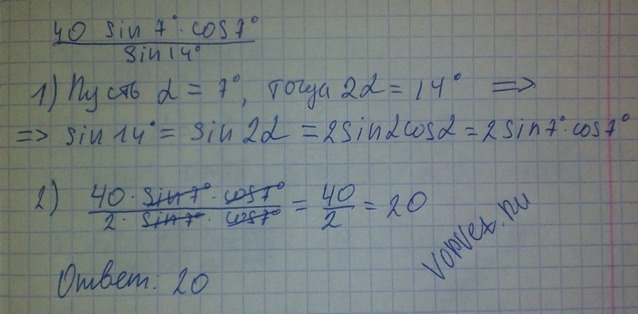 40 sin 7° · cos 7°
sin 14°
1) Пусть α = 7°, тогда 2α = 14° ⇒
⇒ sin 14° = sin 2α = 2 sin α cos α = 2 sin 7° · cos 7°
2) 40 · sin 7° · cos 7° / 2 · sin 7° · cos 7° = 40/2 = 20
Ответ: 20
vopvet.ru